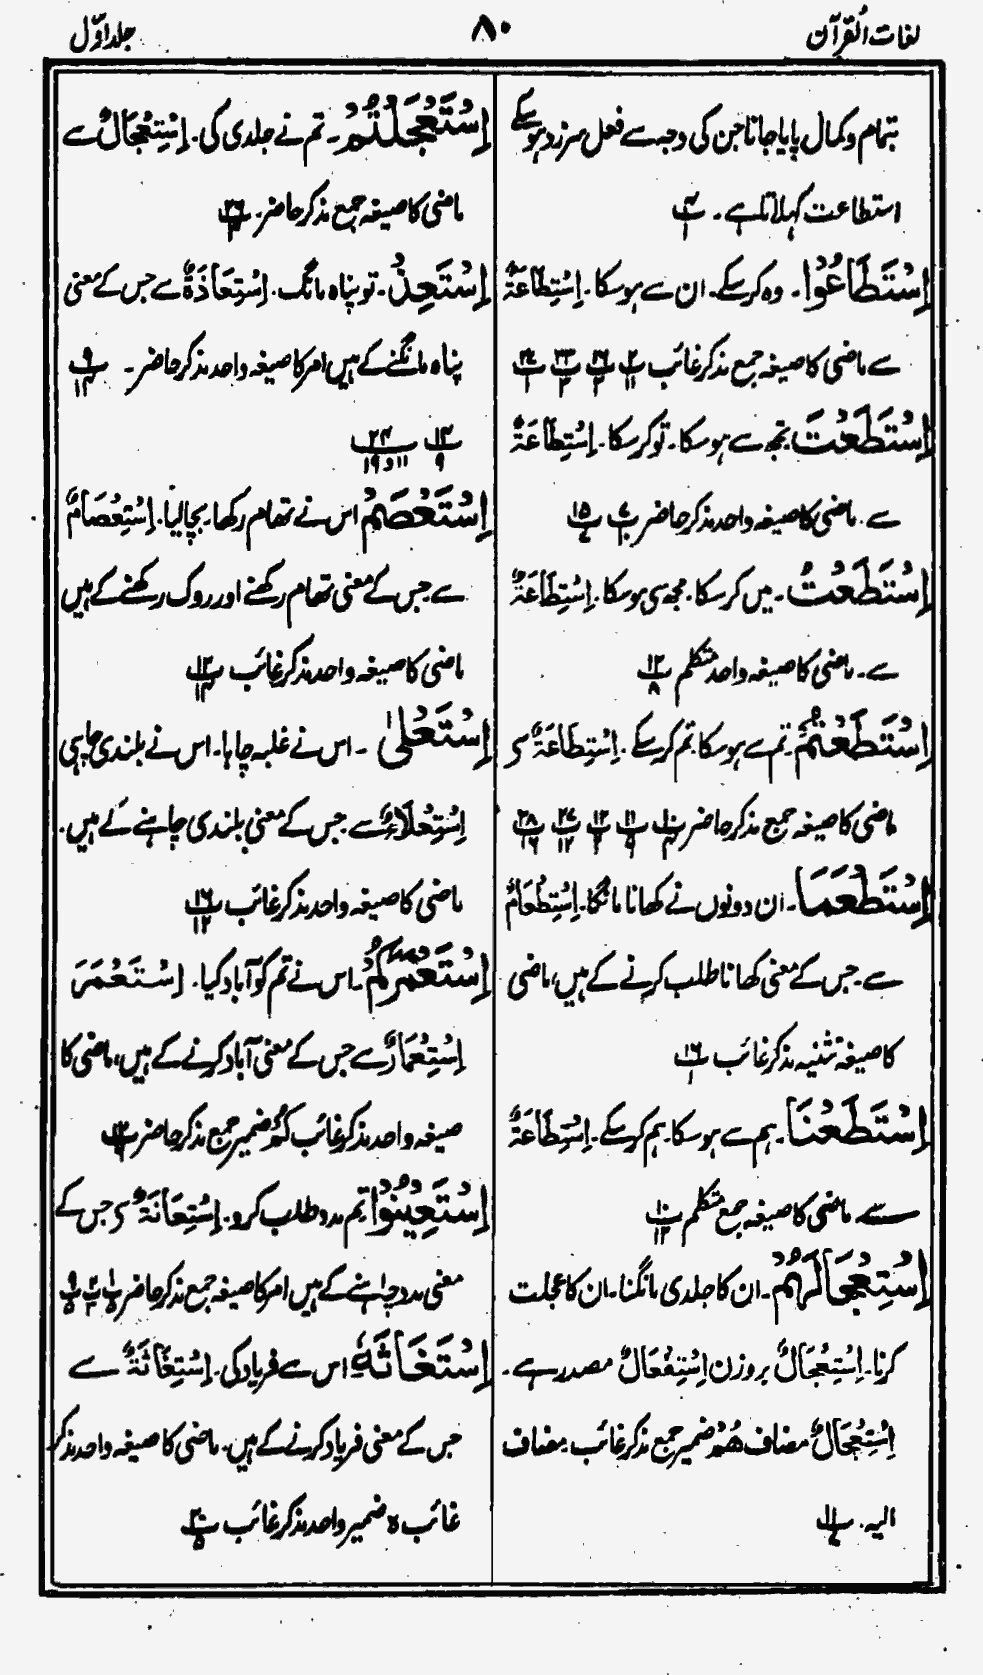 لغات القرآن
۸۰
جلد اوّل
بتمام و کمال پایا جاتا جن کی وجہ سے فعل سرزد ہو سکے
استطاعت کہلاتا ہے۔
اِسْتَطَاعُوْا۔ وہ کر سکے۔ ان سے ہو سکا۔ اِسْتِطَاعَةٌ
سے ماضی کا صیغہ جمع مذکر غائب
اِسْتَطَعْتَ تجھ سے ہو سکا۔ تو کر سکا۔ اِسْتِطَاعَةٌ
سے۔ ماضی کا صیغہ واحد مذکر حاضر
اِسْتَطَعْتُ۔ میں کر سکا۔ مجھ سے ہو سکا۔ اِسْتِطَاعَةٌ
سے۔ ماضی کا صیغہ واحد متکلم ۱۲ پ ۸
اِسْتَطَعْتُمْ۔ تم سے ہو سکا تم کر سکے۔ اِسْتِطَاعَةٌ سے
ماضی کا صیغہ جمع مذکر حاضر
اِسْتَطْعَمَا۔ ان دونوں نے کھانا مانگا۔ اِسْتِطْعَامٌ
سے۔ جس کے معنی کھانا طلب کرنے کے ہیں، ماضی
کا صیغہ تثنیہ مذکر غائب ۱۶ پ ۱
اِسْتَطَعْنَا۔ ہم سے ہو سکا۔ ہم کر سکے۔ اِسْتِطَاعَةٌ
سے۔ ماضی کا صیغہ جمع متکلم ۱۰ پ ۱۲
اِسْتِعْجَالَهُمْ۔ ان کا جلدی مانگنا۔ ان کا عجلت
کرنا۔ اِسْتِعْجَالٌ بروزن اِسْتِفْعَالٌ مصدر ہے۔
اِسْتِعْجَالٌ مضاف هُمْ ضمیر جمع مذکر غائب۔ مضاف
الیہ۔ ۱۱ پ ۷
اِسْتَعْجَلْتُمْ۔ تم نے جلدی کی۔ اِسْتِعْجَالٌ سے
ماضی کا صیغہ جمع مذکر حاضر۔
اِسْتَعِذْ۔ تو پناہ مانگ۔ اِسْتِعَاذَةٌ سے جس کے معنی
پناہ مانگنے کے ہیں امر کا صیغہ واحد مذکر حاضر۔ ۹ پ ۱۴
۱۴ پ ۹ ۲۴ پ ۱۱ و ۱۹
اِسْتَعْصَمَ اس نے تھام رکھا۔ بچا لیا۔ اِسْتِعْصَامٌ
سے جس کے معنی تھام رکھنے اور روک رکھنے کے ہیں
ماضی کا صیغہ واحد مذکر غائب ۱۲ پ ۱۴
اِسْتَعْلٰى۔ اس نے غلبہ چاہا۔ اس نے بلندی چاہی
اِسْتِعْلَاءٌ سے جس کے معنی بلندی چاہنے کے ہیں۔
ماضی کا صیغہ واحد مذکر غائب ۱۶ پ ۱۲
اِسْتَعْمَرَكُمْ۔ اس نے تم کو آباد کیا۔ اِسْتَعْمَرَ
اِسْتِعْمَارٌ سے جس کے معنی آباد کرنے کے ہیں، ماضی کا
صیغہ واحد مذکر غائب كُمْ ضمیر جمع مذکر حاضر
اِسْتَعِيْنُوْا تم مدد طلب کرو۔ اِسْتِعَانَةٌ سے جس کے
معنی مدد چاہنے کے ہیں امر کا صیغہ جمع مذکر حاضر
اِسْتَغَاثَهٗ اس سے فریاد کی۔ اِسْتِغَاثَةٌ سے
جس کے معنی فریاد کرنے کے ہیں۔ ماضی کا صیغہ واحد مذکر
غائب ہ ضمیر واحد مذکر غائب ۲۰ پ ۵